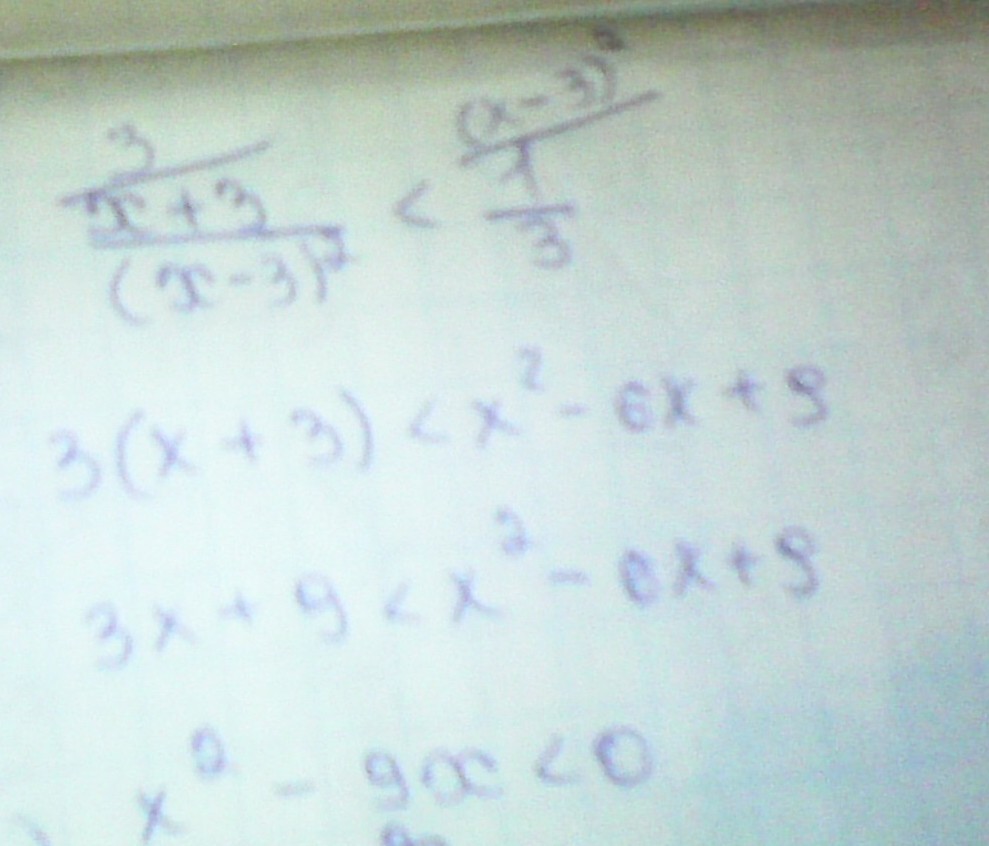 3/(x+3)/(x-3)² < (x-3)²/1/3
3(x+3) < x² - 6x + 9
3x + 9 < x² - 6x + 9
x² - 9x < 0